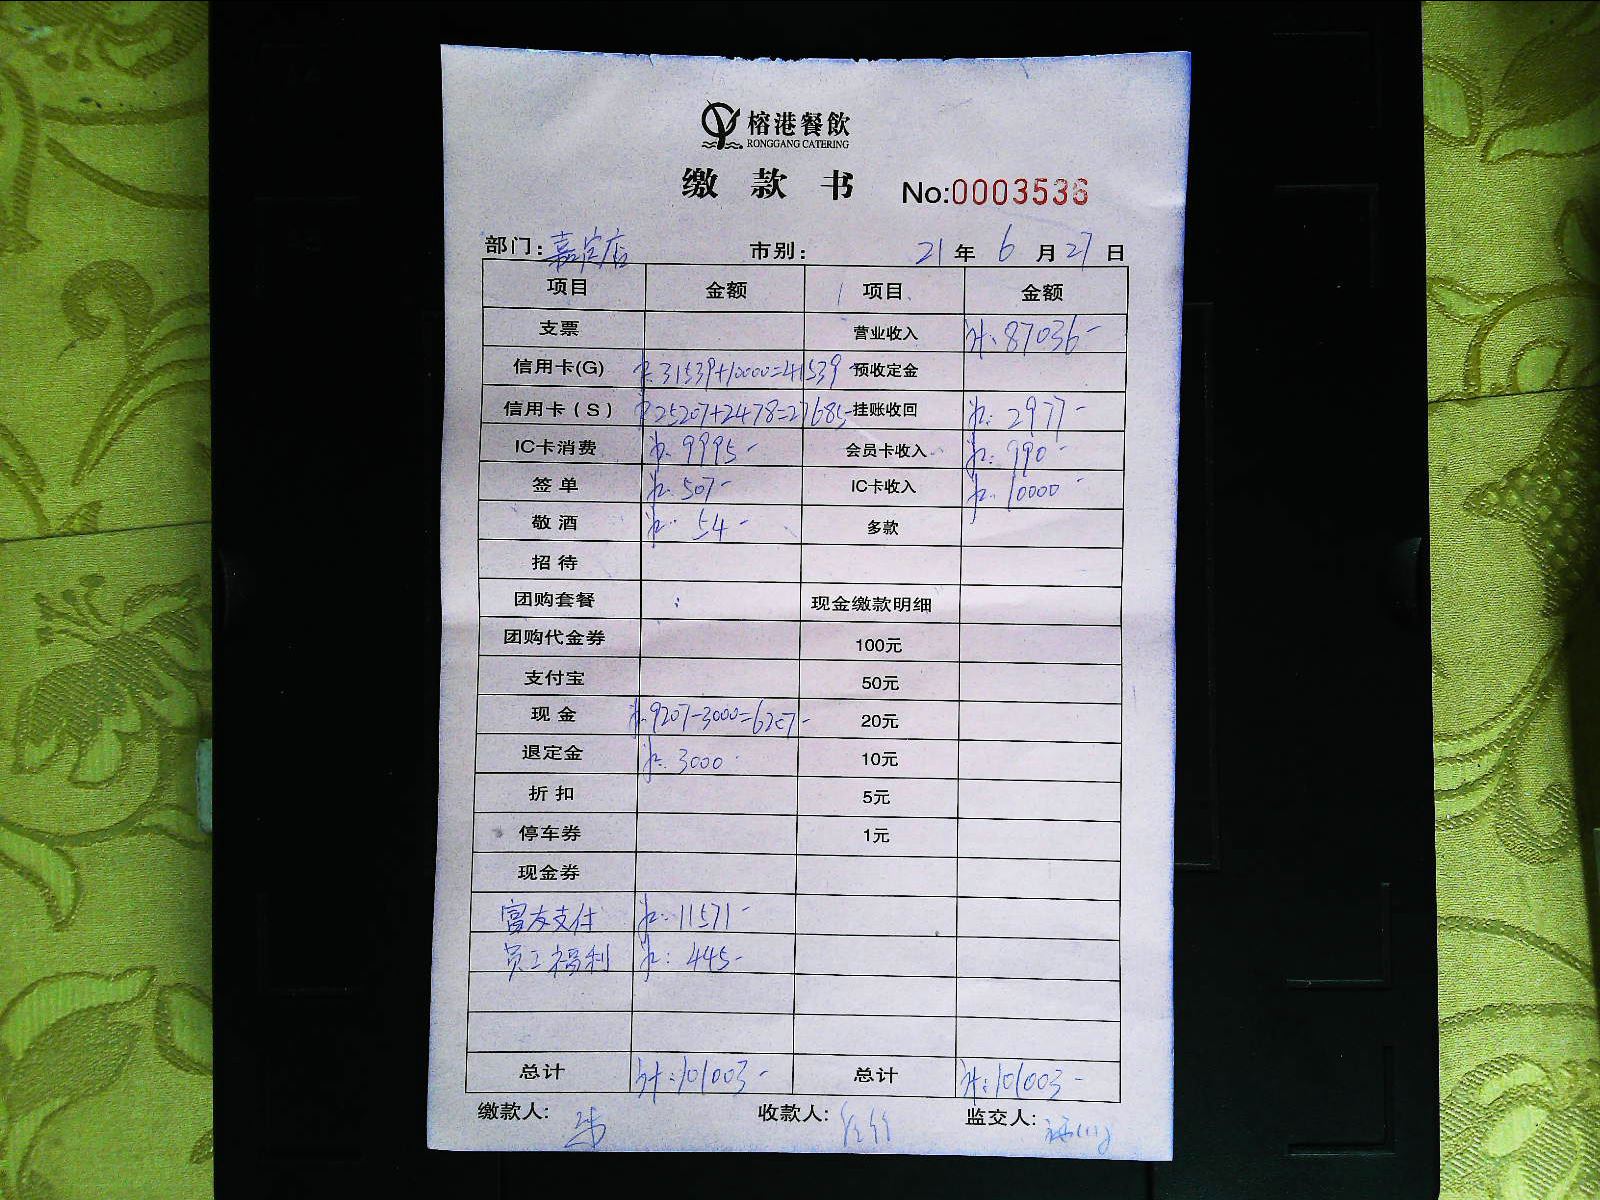 榕港餐飲
RONGGANG CATERING
缴款书 No:0003536
部门: 嘉定店 市别: 21年6月27日
项目 金额 项目 金额
支票 营业收入 计: 87036-
信用卡(G) 31539+10000=41539 预收定金
信用卡(S) 25207+2478=27685- 挂账收回 2977-
IC卡消费 9995- 会员卡收入 990-
签单 507- IC卡收入 10000-
敬酒 54- 多款
招待
团购套餐 现金缴款明细
团购代金券 100元
支付宝 50元
现金 9207-3000=6207- 20元
退定金 3000 10元
折扣 5元
停车券 1元
现金券
富友支付 11571-
员工福利 445-
总计 计:101003- 总计 计:101003-
缴款人: 收款人: 监交人: